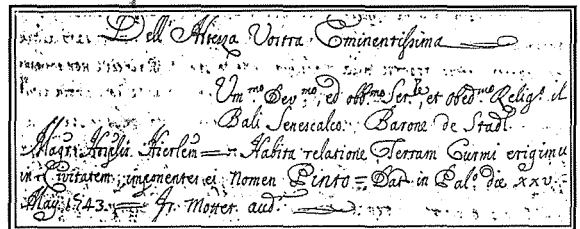 Dell' Altezza Vostra Eminentissima
Um.mo Dev.mo, ed obb.mo Ser.le, et obed.mo Relig.o il
Bali Senescalco. Barone de Stadl.
Habita relatione Terram Curmi erigimu
in Civitatem, imponentes ei nomen Pinto = Dat in Pal.o die xxv
May 1743. = Fr. Mottet aud.r